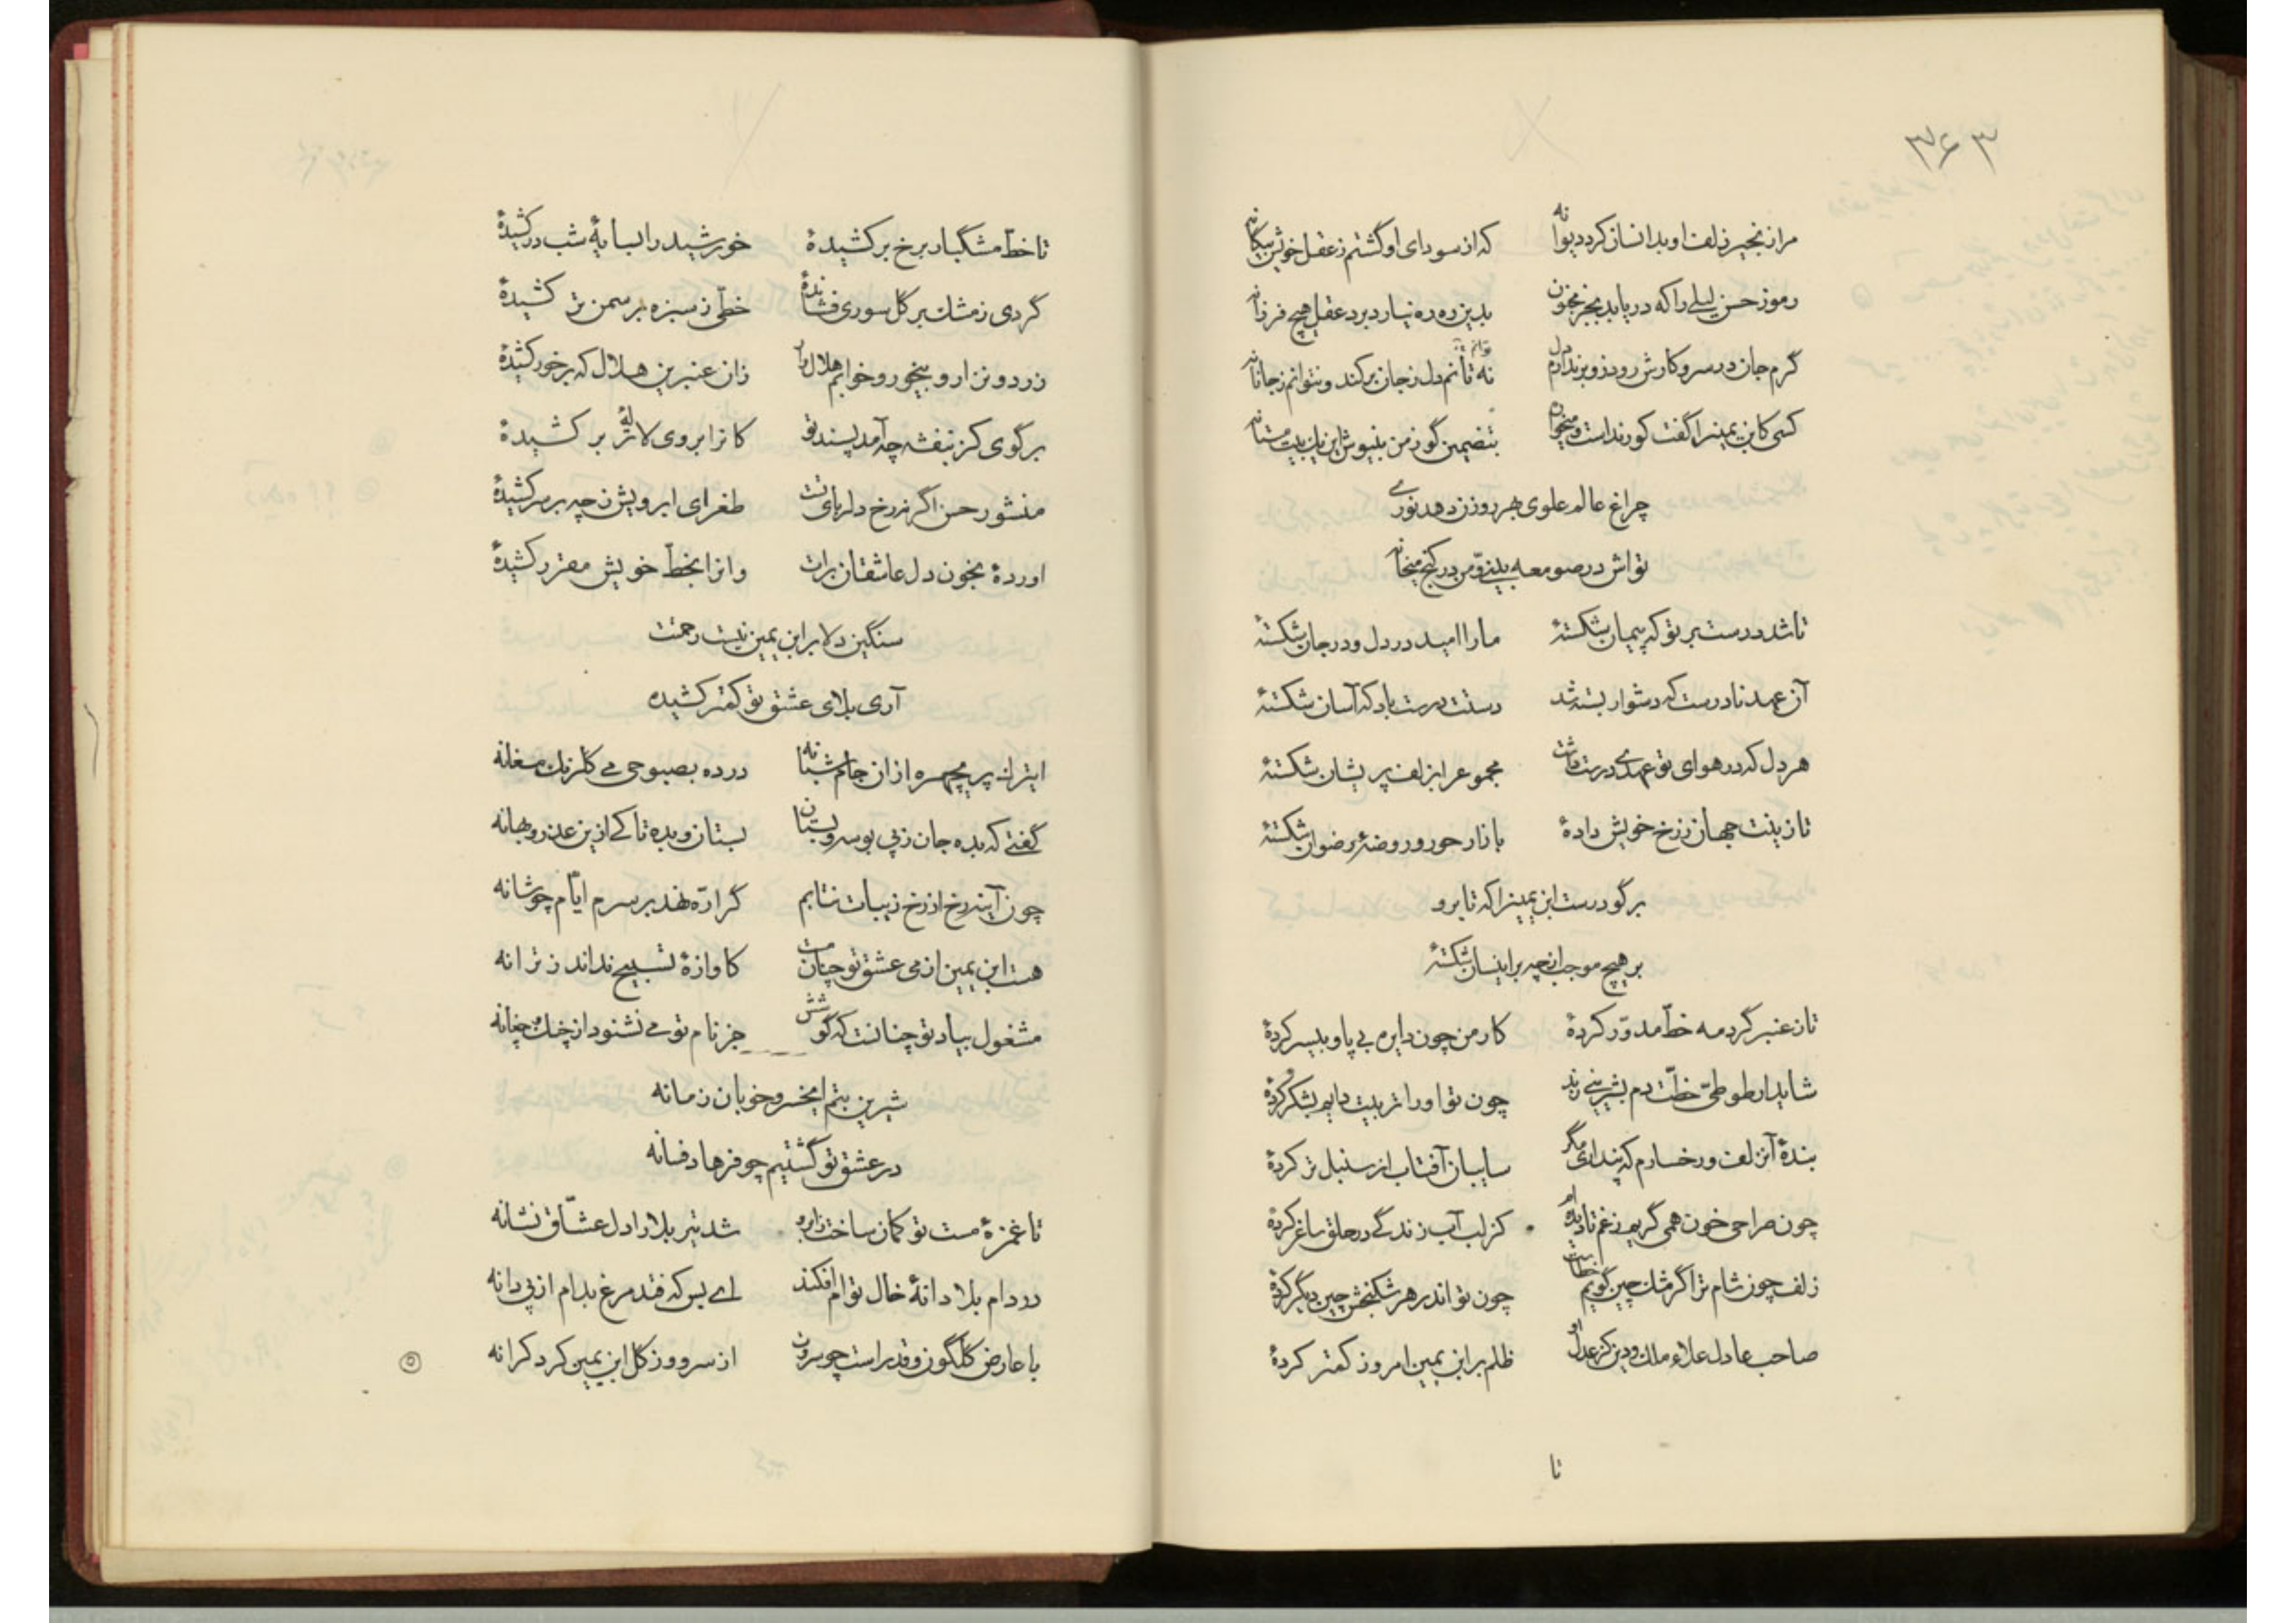 ۳۶۳
مرا زنجیر زلف او بدانسان کرد دیوانه که از سودای او گشتم ز عقل خویش بیگانه
رموز حسن لیلی را که دریابد بجز مجنون بدین ده ره نیارد برد عقل هیچ فرزانه
گرم جان در سر و کارش رود زو برندارم دل نه تانم دل ز جان برکند و نتوانم ز جانانه
کسی کابن یمین را گفت کو رند است و میخواره بتضمین گو ز من بنیوش این یک بیت مستانه
چراغ عالم علوی بهر روزن دهد نوری
تواش در صومعه بینی و من در کنج میخانه
تا شد درست بر تو که پیمان شکستهٔ ما را امید در دل و در جان شکستهٔ
آن عهد نادرست که دشوار بسته شد دستت درست باد که آسان شکستهٔ
هر دل که در هوای تو عهدی درست داشت مجموع را بزلف پریشان شکستهٔ
تا زینت جهان ز رخ خویش دادهٔ بازار حور و روضهٔ رضوان شکستهٔ
برگو درست ابن یمین را که تا برو
بر هیچ موجب از چه برینسان شکستهٔ
تا ز عنبر گرد مه خطّ مدوّر کردهٔ کار من چون دایره بی پا و بیسر کردهٔ
شاید ار طوطیّ خطّت دم بشیرینی زند چون تو او را تربیت دایم بشکّر کردهٔ
بندهٔ آن زلف و رخسارم که پنداری مگر سایبان آفتاب از سنبل تر کردهٔ
چون صراحی خون همی گریم ز غم تا دیده‌ام کز لب آب زندگی در حلق ساغر کردهٔ
زلف چون شام ترا گر مشک چین گویم خطاست چون تو اندر هر شکنجش چین دیگر کردهٔ
صاحب عادل علاء ملک و دین کز عدل او ظلم بر ابن یمین امروز کمتر کردهٔ
تا
تا خطّ مشگبار برخ برکشیدهٔ خورشید را بسایهٔ شب درکشیدهٔ
گردی ز مشک بر گل سوری فشاندهٔ خطّی ز سبزه بر سمن تر کشیدهٔ
زرد و نزار و بیخور و خوابم هلال‌وار زان عنبرین هلال که بر خور کشیدهٔ
برگوی کز بنفشه چه آمد پسند تو کانرا بروی لالهٔ تر برکشیدهٔ
منشور حسن اگر نه رخ دلربای تست طغرای ابرویش ز چه بر سر کشیدهٔ
آوردهٔ بخون دل عاشقان برات وانرا بخطّ خویش مقرر کشیدهٔ
سنگین دلا بر ابن یمین نیست رحمتت
آری بلای عشق تو کمتر کشیده
ای ترک پریچهره از آن جام شبانه در ده بصبوحی می گلرنگ مغانه
گفتی که بده جان ز پی بوسه و بستان بستان و بده تا کی ازین عذر و بهانه
چون آینه رخ از رخ زیبات نتابم گر ارّه نهد بر سرم ایّام چو شانه
هست ابن یمین از می عشق تو چنان مست کاوازهٔ تسبیح نداند ز ترانه
مشغول بیاد تو چنانست که گوشش جز نام تو می نشنود از چنگ و چغانه
شیرین بتم ای خسرو خوبان زمانه
در عشق تو گشتیم چو فرهاد فسانه
تا غمزهٔ مست تو کمان ساخت ز ابرو شد تیر بلا را دل عشّاق نشانه
در دام بلا دانهٔ خال توام افکند ای بس که فتد مرغ بدام از پی دانه
با عارض گلگون و قد راست چو سروت از سرو و ز گل ابن یمین کرد کرانه